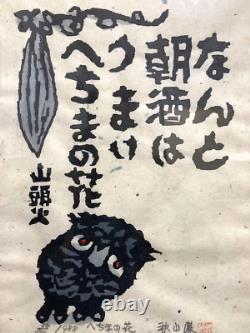 なんと
朝酒は
うまい
へちまの花
山頭火
へちまの花
秋山巌